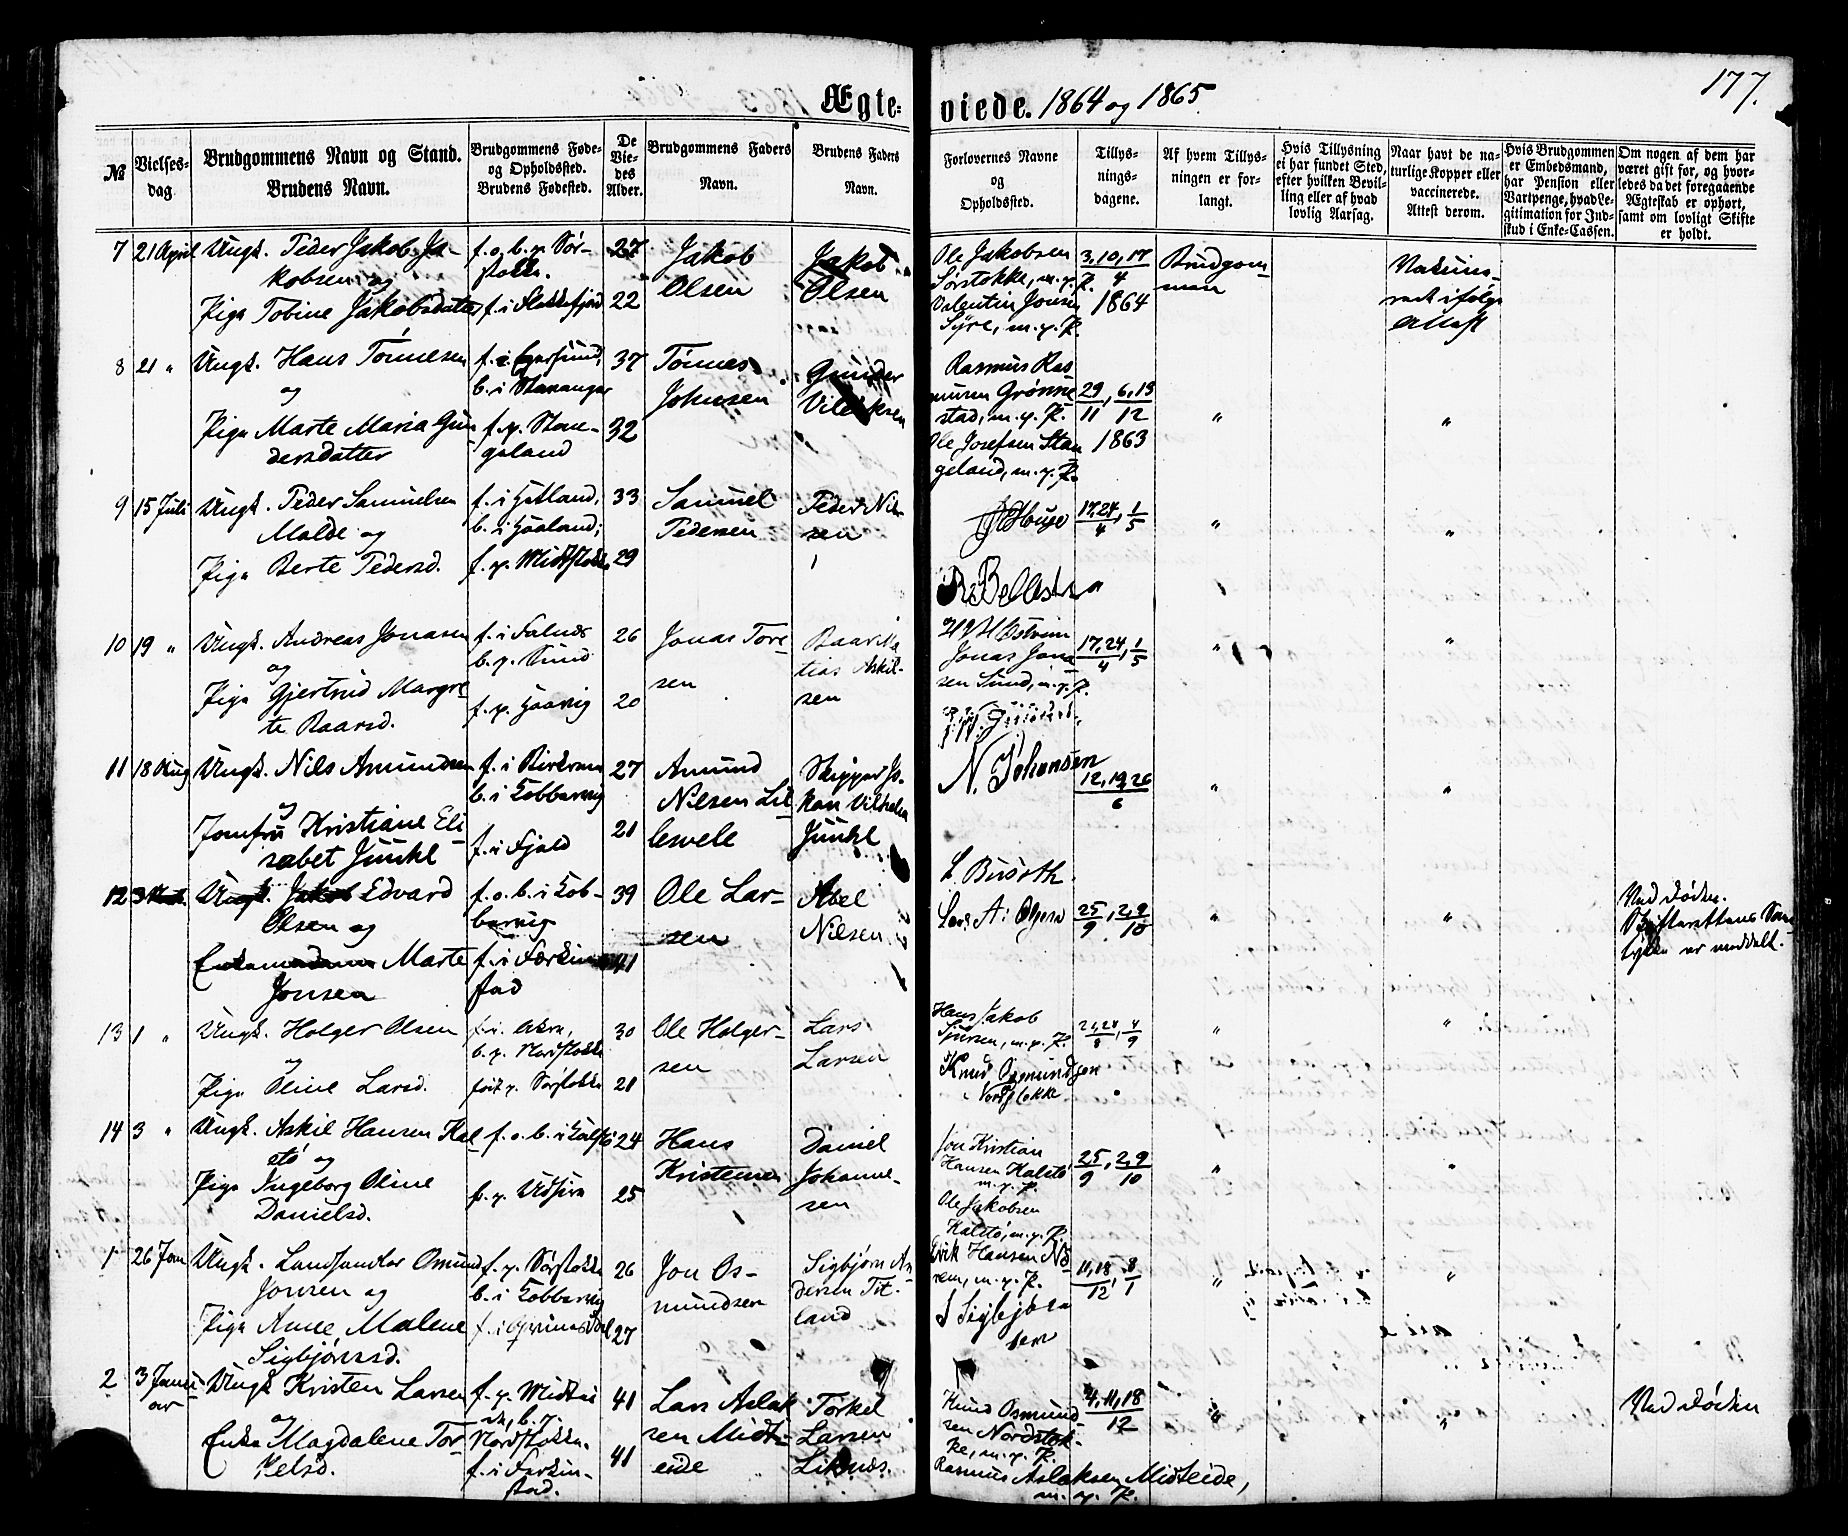 177.
Ægte- viede. 1864 og 1865
№
Vielses-
dag.
Brudgommens Navn og Stand.
Brudens Navn.
Brudgommens Føde-
og Opholdssted.
Brudens Fødested.
De
Vie-
des
Alder.
Brudgommens Faders
Navn.
Brudens Faders
Navn.
Forlovernes Navne
og
Opholdssted.
Tillys-
nings-
dagene.
Af hvem Tillys-
ningen er for-
langt.
Hvis Tillysning
ei har fundet Sted,
efter hvilken Bevil-
ling eller af hvad
lovlig Aarsag.
Naar havt de na-
turlige Kopper eller
vaccinerede.
Attest derom.
Hvis Brudgommen
er Embedsmand,
har Pension eller
Vartpenge, hvad Le-
gitimation for Ind-
skud i Enke-Cassen.
Om nogen af dem har
været gift før, og hvor-
ledes da det foregaaende
Ægteskab er ophørt,
samt om lovligt Skifte
er holdt.
7 21 April Ungk. Peder Jakob Ja-
kobsen og
Pige Tobine Jakobsdatter
f. o. b. p. Sør-
stokke.
f. i Flekkefjord
27
22
Jakob
Olsen
Jakob
Olsen
Ole Jakobsen
Sørstokke, m. p. P.
Valentin Jonsen
Syre, m. p. P.
3, 10, 17
4
1864
Brudgom-
men
attest
8 21 " Ungk. Hans Tønnesen
og
Pige Marte Maria Gun-
dersdatter
f. i Egersund,
b. i Stavanger
f. p. Stan-
geland
37
32
Tønnes
Johnsen
Gunder
Rasmus Ras-
musen Grønne-
stad, m. p. P.
Ole Josefsen Stan
geland, m. p. P.
29, 6, 13
11 12
1863
"
"
9 15 Juli Ungk. Peder Samuelsen
Malde og
Pige Berte Pedersd.
f. i Hetland,
b. i Haaland;
f. p. Midtstokke
33
29
Samuel
Pedersen
Peder Nil-
sen
17, 24, 1
4 5
"
"
10 19 " Ungk. Andreas Jonasen
og
Pige Gjertrud Margre-
te Baarsd.
f. i Falnes
b. p. Sund
f. p. Haavig
26
20
Jonas Tore-
sen
tias Askil-
sen
Jonas Jona-
sen Sund, m. p. P.
17, 24, 1
4 5
"
"
11 18 Aug Ungk. Nils Amundsen
og
Jomfru Kristiane Eli-
sabet Juuhl
b. i Kobbervig
f. i Fjeld
27
21
Amund
Nilsen Lil-
lesvele
Skipper
Vilhelm
Juuhl
N. Johansen
12, 19, 26
6
"
"
12 Ungk. Jakob Edvard
Olsen og
Marte
Jonsen
f. o. b. i Kob-
bervig
f. i Ferkin-
stad
39
41
Ole Lar-
sen
Abel
Nilsen
Lars A: Olsen
25, 2, 9
9 10
"
"
Ved Døden.
er meddelt.
13 1 " Ungk. Holger Olsen
og
Pige Oline Larsd.
b. p. Nordstokke
30
21
Ole Holger-
sen
Lars
Larsen
Hans Jakob
m. p. P.
Knud Osmundsen
Nordstokke.
21, 28, 4
8 9
"
"
14 3 " Ungk. Askil Hansen Kal-
stø og
Pige Ingeborg Oline
Danielsd.
f. o. b. i Kalstø
f. p. Udsire
24
25
Hans
Kristensen
Daniel
Johanne-
sen
Jon Kristian
Hansen Kalstø
m. p. P.
Ole Jakobsen
Kalstø, m. p. P.
25, 2, 9
9 10
"
"
1 26 Jan Ungk. Landhandler Osmund
Jonsen og
Pige Anne Malene
Sigbjørnsd.
f. p. Sørstokke
b. i Kobbervig
26
27
Jon Os-
mundsen
Sigbjørn An-
dersen Tit-
land
Erik Hansen
m. p. P.
11, 18, 8
12 1
"
"
2 3 Janu-
ar
Ungk Kristen Larsen
og
Enke Magdalene Tor-
kelsd.
f. p. Midtei-
de, b. p.
Nordstokke.
f. i Ferkin-
stad.
41
41
Lars Aslak-
sen Midt-
eide
Torkel
Larsen
Liknes.
Knud Osmund-
sen Nordstok-
ke, m. p. P.
Rasmus Aslaksen Midteide,
m. p. P.
4, 11, 18
12
"
"
Ved Døden